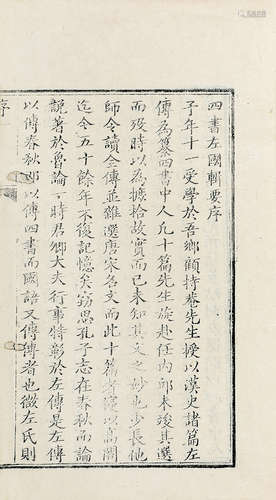 四書左國輯要序
子年十一受學於吾鄉顧持庵先生授以漢史諸篇左
傳為纂四書中人凡十篇先生旋赴任内邱未竣其選
而歿時以為摭拾故實而已未知其文之妙也少長他
師令讀全傳並雜選唐宋名文而此十篇者寖以高閣
迄今五十餘年不復記憶矣竊思孔子志在春秋而論
說著於魯論一時君卿大夫行事特彰於左傳是左傳
以傳春秋即以傳四書而國語又傳傳者也微左氏則
序